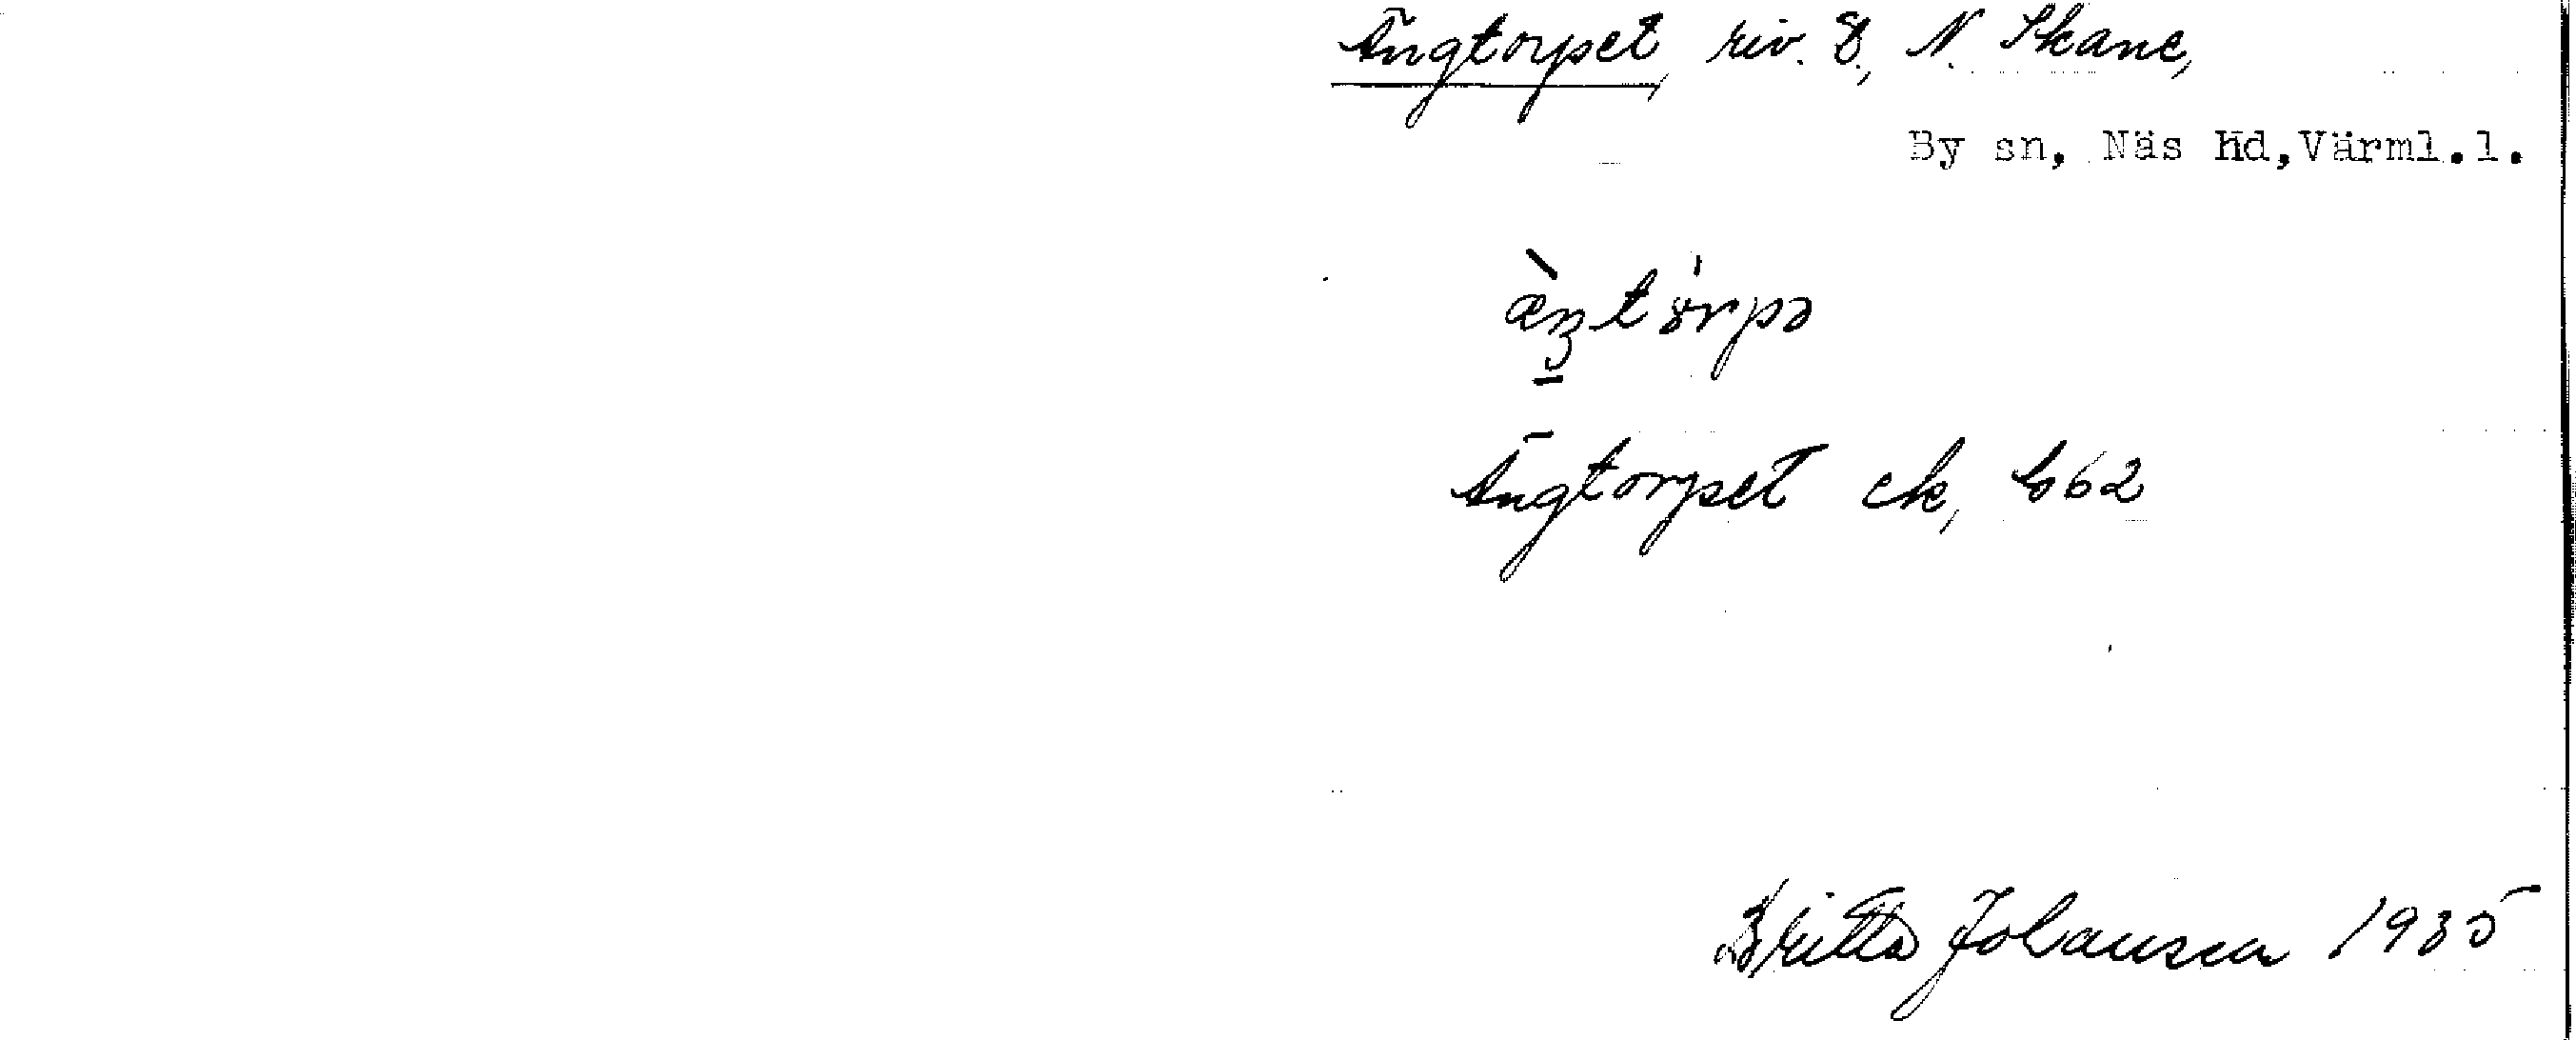 Ängtorpet, riv. t., N. Skane,
By sn, Näs hd,Värml.l.
Ängtorpet ek, 662
Britta Johansen 1935